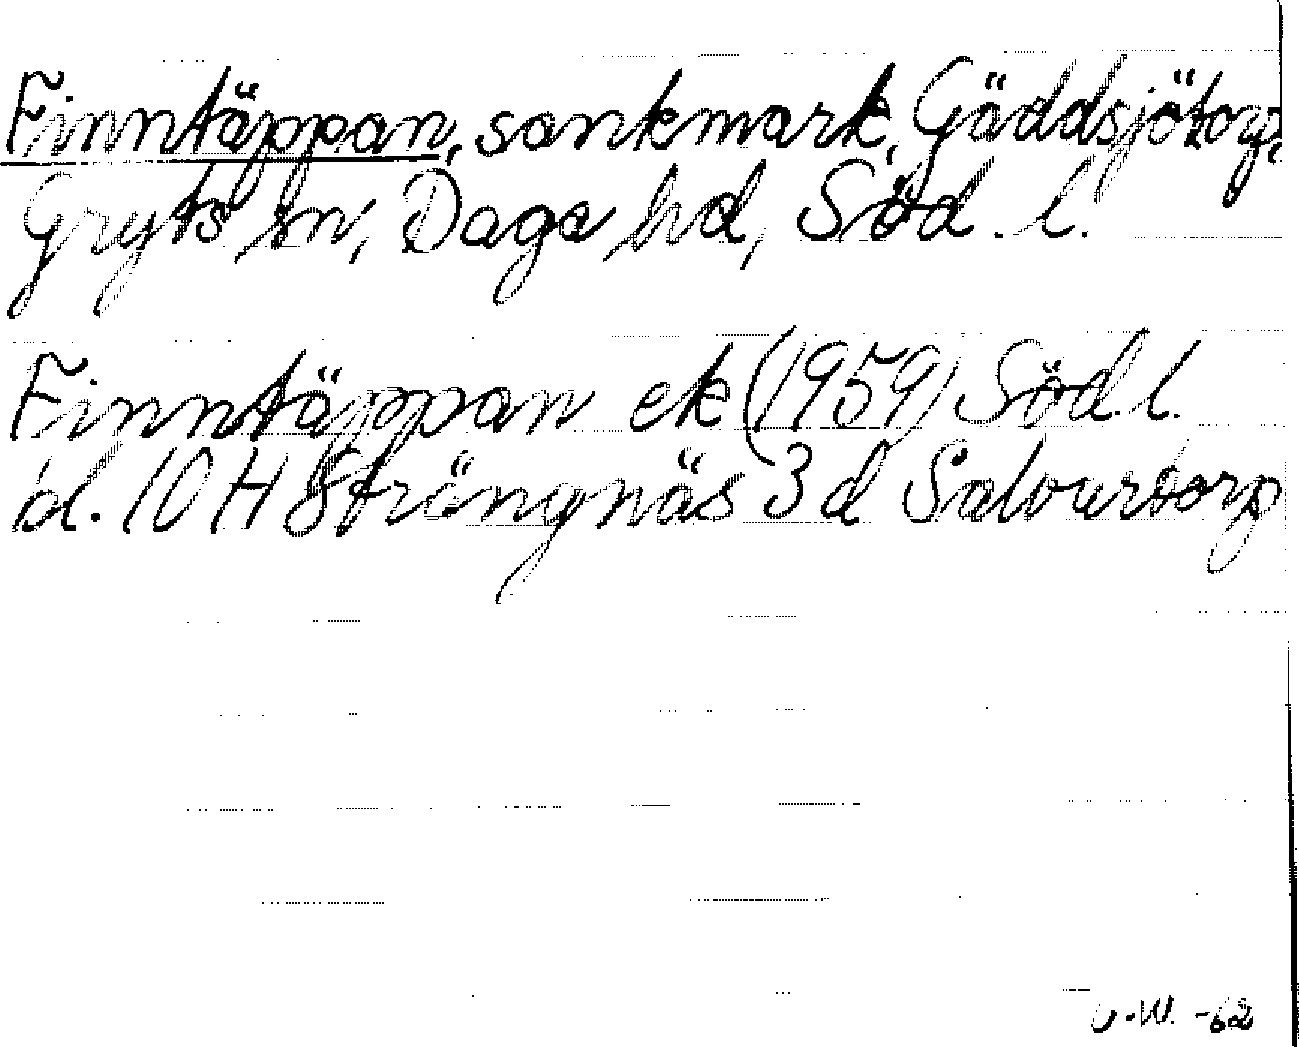 Finntäppan, sankmark, Gäddsjötorp,
Gryts sn, Daga hd, Söd. l.
Finntäppan ek (1959) Söd. l.
bl. 10 H Strängnäs 3 d Salvartorp
U.W. -62